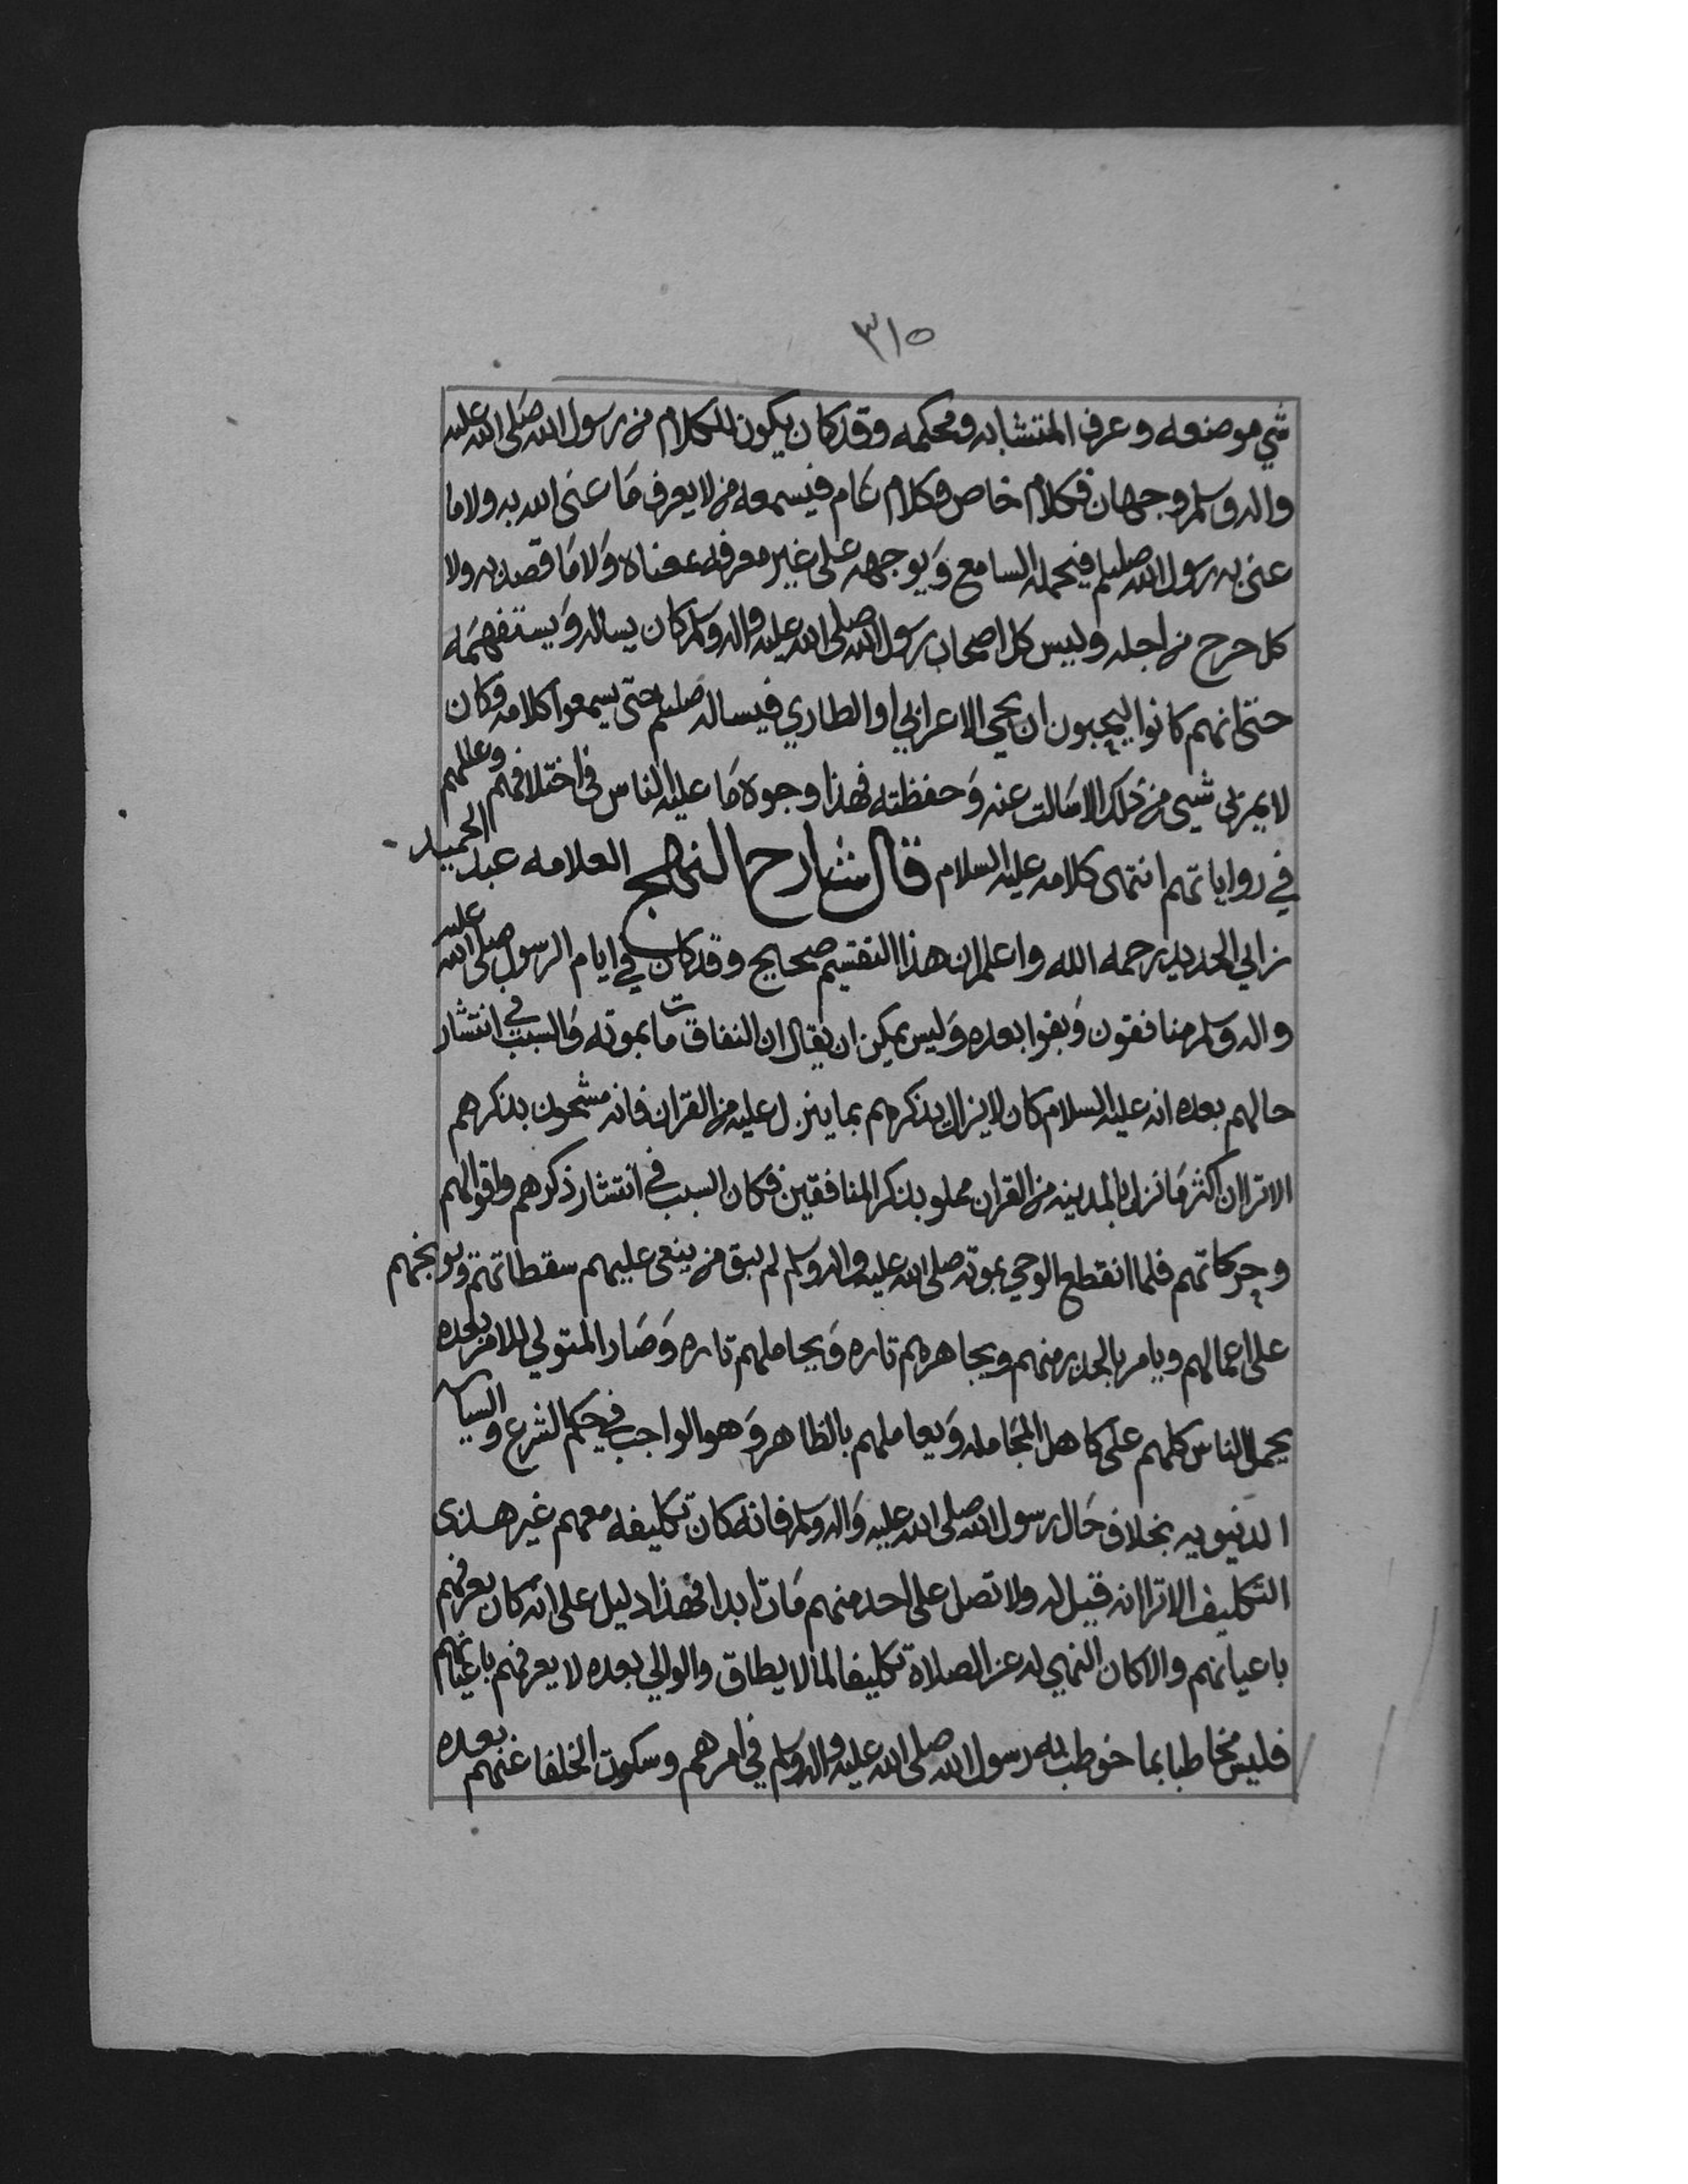 ٣١٥
شي موضعه وعرف المتشابه ومحكمه وقد كان يكون الكلام من رسول الله صلى الله عليه
واله وسلم وجهان فكلام خاص وكلام عام فيسمعه من لا يعرف ما عنى الله به ولا ما
عنى به رسول الله صلعم فيحمله السامع ويوجهه على غير معرفه بمعناه ولا ما قصد به ولا
كل خرج من اجله وليس كل اصحاب رسول الله صلى الله عليه واله وسلم كان يساله ويستفهمه
حتى انهم كانوا ليحبون ان يجي الاعرابي او الطاري فيساله صلعم حتى يسمعوا كلامه وكان
لا يمر بي شيى من ذلك الا سالت عنه وحفظته فهذا وجوه ما عليه الناس في اختلافهم وعللهم
في رواياتهم انتهى كلامه عليه السلام قال شارح النهج العلامه عبد الحميد
بن ابي الحديد رحمه الله واعلم ان هذا التقسيم صحيح وقد كان في ايام الرسول صلى الله عليه
واله وسلم منافقون وبقوا بعده وليس يمكن ان يقال ان النفاق مات بموته والسبب في انتشار
حالهم بعده انه عليه السلام كان لا يزال يذكرهم بما ينزل عليه من القران فانه مشحون بذكرهم
الا ترا ان اكثر ما نزل بالمدينه من القران مملو بذكر المنافقين فكان السبب في انتشار ذكرهم واقوالهم
وحركاتهم فلما انقطع الوحي بموته صلى الله عليه واله وسلم لم يبق من ينعى عليهم سقطاتهم ويوبخهم
على اعمالهم ويامر بالحذر منهم ويجاهرهم تاره ويجاملهم تاره وصار المتولي للامر بعده
يحمل الناس كلهم على كاهل المجامله ويعاملهم بالظاهر وهو الواجب في حكم الشرع والسياسه
الدنيويه بخلاف حال رسول الله صلى الله عليه واله وسلم فانه كان تكليفه معهم غير هذى
التكليف الا ترا انه قيل له ولا تصل على احد منهم مات ابدا فهذا دليل على انه كان يعرفهم
باعيانهم والا كان النهي له عن الصلاة تكليفا لما لا يطاق والوالي بعده لا يعرفهم باعيانهم
فليس مخاطبا بما خوطب به رسول الله صلى الله عليه واله وسلم في امرهم وسكوت الخلفا عنهم بعده